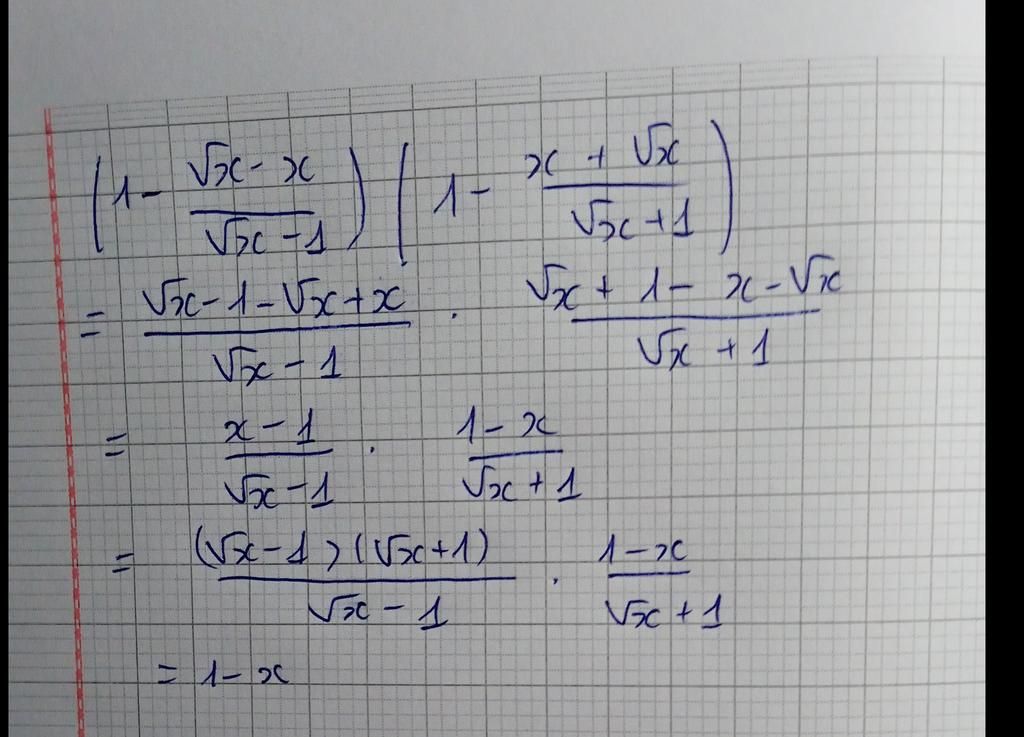 (1 - (√x - x)/(√x - 1)) (1 - (x + √x)/(√x + 1))
= (√x - 1 - √x + x)/(√x - 1) . (√x + 1 - x - √x)/(√x + 1)
= (x - 1)/(√x - 1) . (1 - x)/(√x + 1)
= ((√x - 1)(√x + 1))/(√x - 1) . (1 - x)/(√x + 1)
= 1 - x